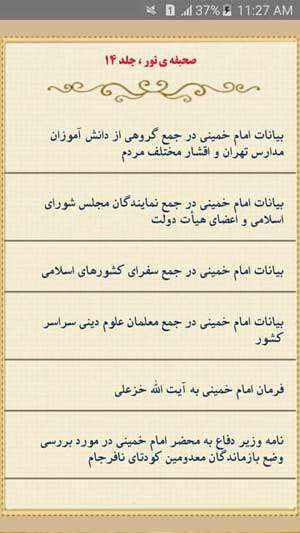 37% 11:27 AM
صحیفه ی نور ، جلد ۱۴
بیانات امام خمینی در جمع گروهی از دانش آموزان
مدارس تهران و اقشار مختلف مردم
بیانات امام خمینی در جمع نمایندگان مجلس شورای
اسلامی و اعضای هیأت دولت
بیانات امام خمینی در جمع سفرای کشورهای اسلامی
بیانات امام خمینی در جمع معلمان علوم دینی سراسر
کشور
فرمان امام خمینی به آیت الله خزعلی
نامه وزیر دفاع به محضر امام خمینی در مورد بررسی
وضع بازماندگان معدومین کودتای نافرجام